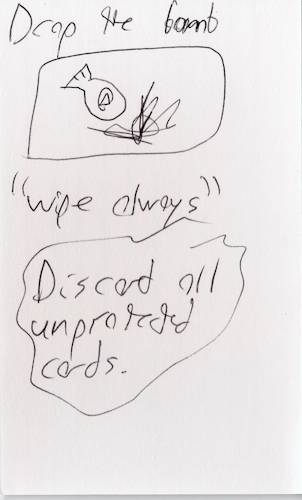 Drop the bomb
"wipe always"
Discard all
unprotected
cards.